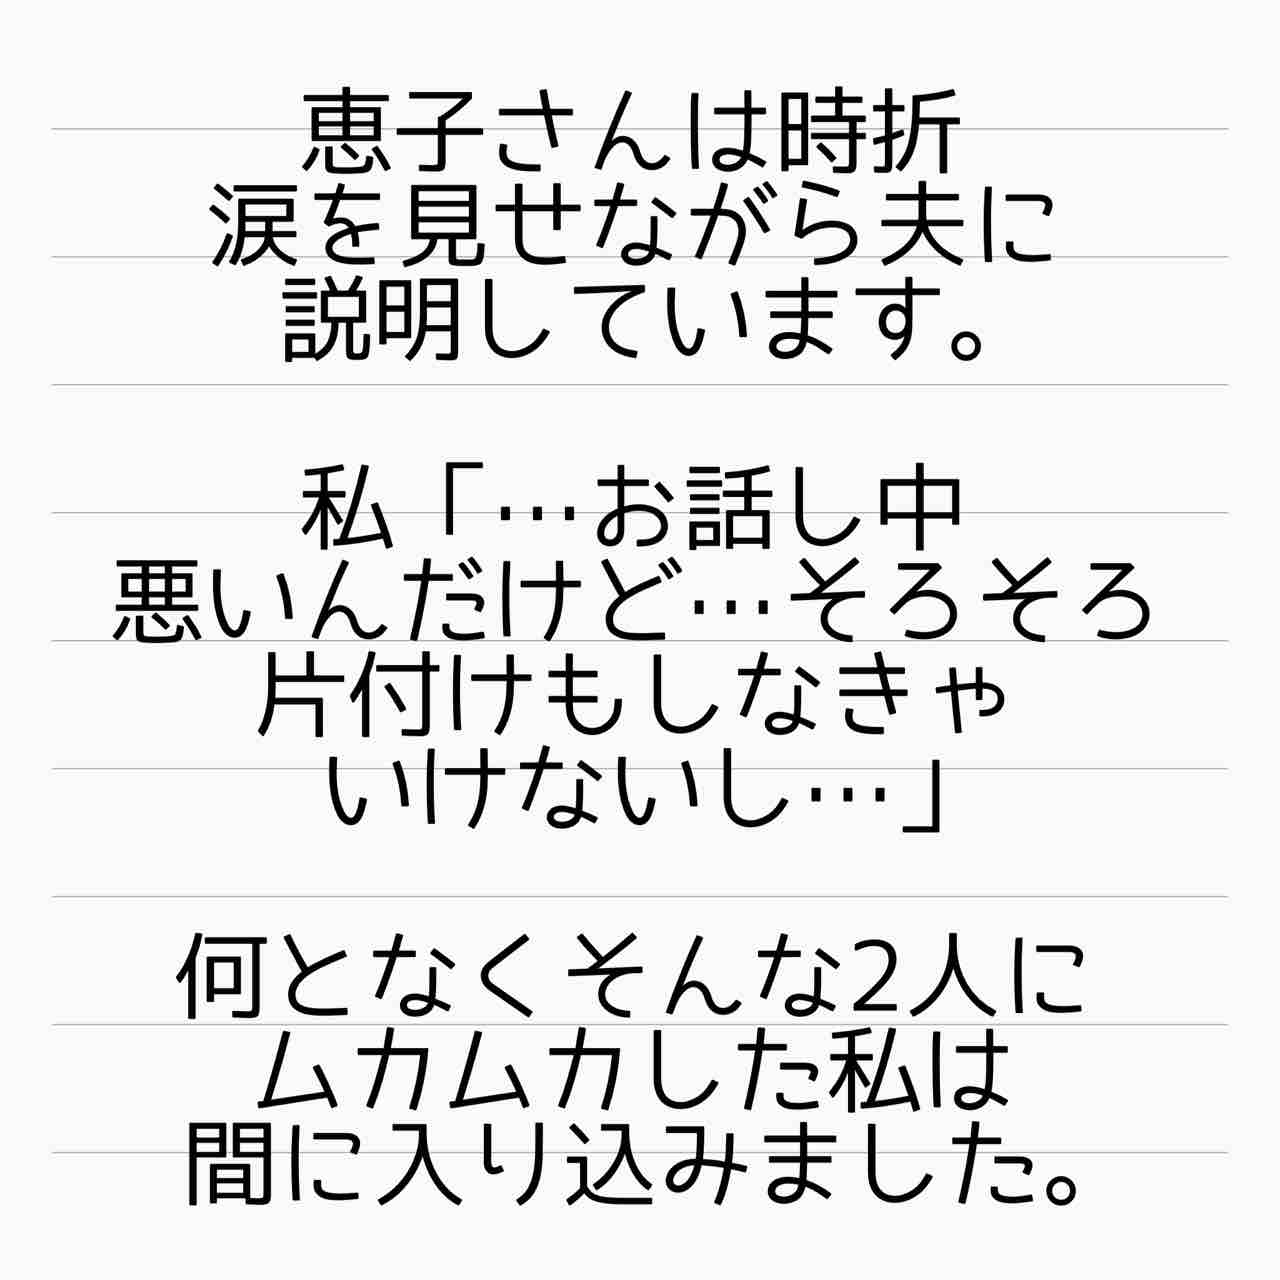 恵子さんは時折
涙を見せながら夫に
説明しています。
私「…お話し中
悪いんだけど…そろそろ
片付けもしなきゃ
いけないし…」
何となくそんな2人に
ムカムカした私は
間に入り込みました。